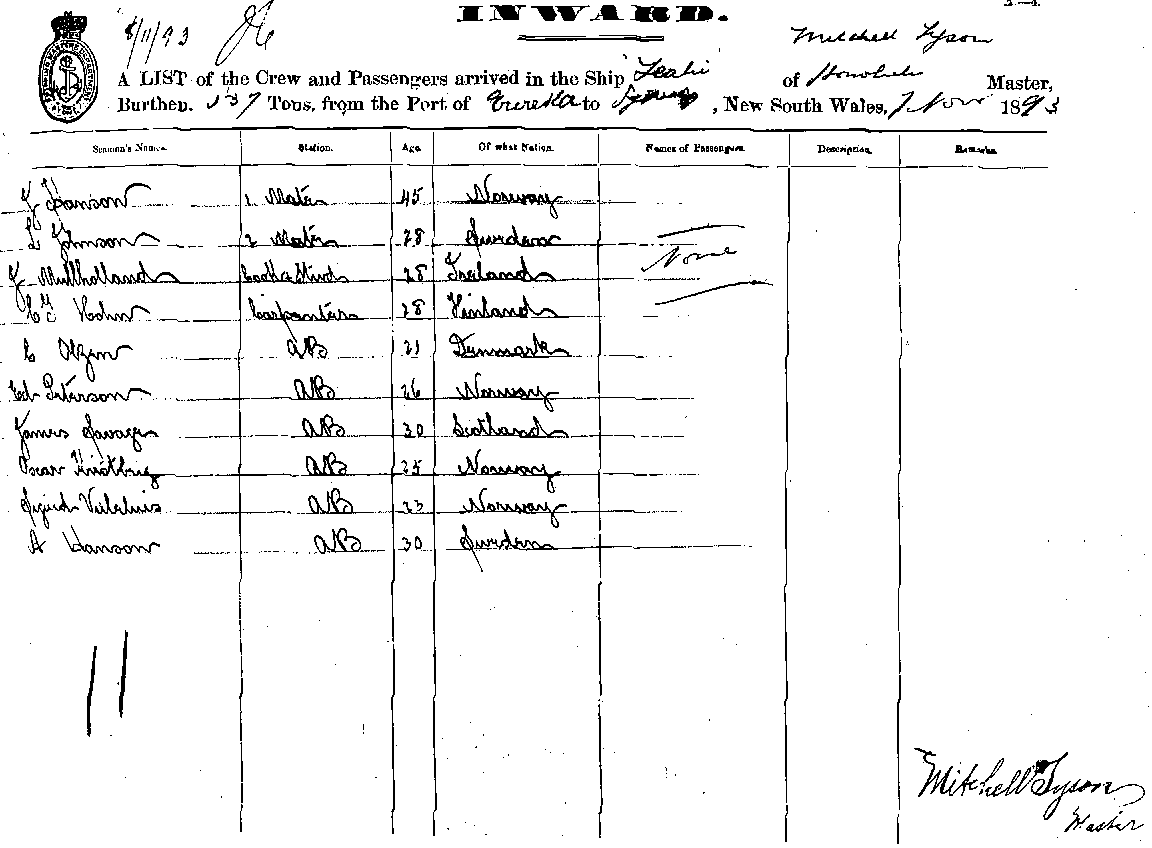 8/11/93
INWARD.
Mitchell Tyson
A LIST of the Crew and Passengers arrived in the Ship of Honolulu Master,
Burthen, 537 Tons, from the Port of Eureka to Sydney, New South Wales, 7 Nov 1893
Seamen's Names. Station. Age. Of what Nation. Names of Passengers. Description. Remarks.
J Hanson 1 Mate 45 Norway
L Johnson 2 Mate 28 Sweden
None
J Mullholland Cook & Stwd 28 Ireland
Carpenter 28 Finland
C AB 21 Denmark
Ed Peterson AB 26 Norway
James Savage AB 30 Scotland
Oscar AB 25 Norway
AB 23 Norway
A Hanson AB 30 Sweden
11
Mitchell Tyson
Master